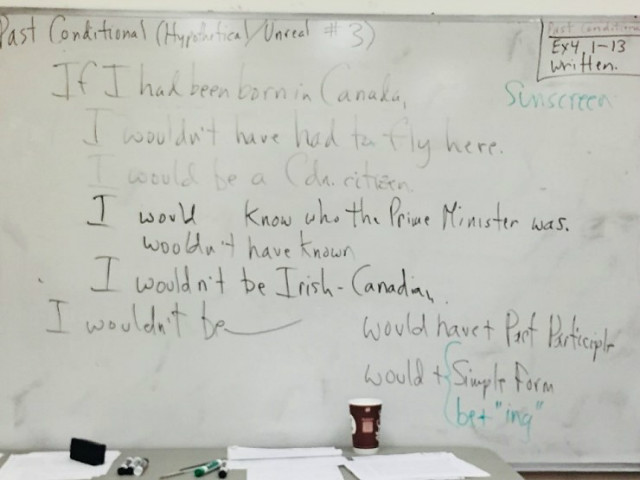 Past Conditional (Hypothetical/Unreal #3)
Past Conditional
Ex4, 1-13
Written.
Sunscreen
If I had been born in Canada,
I wouldn't have had to fly here.
I would be a Cdn. citizen.
I would know who the Prime Minister was.
wouldn't have known
I wouldn't be Irish-Canadian.
I wouldn't be
would have + Past Participle
would + Simple Form
be + "ing"